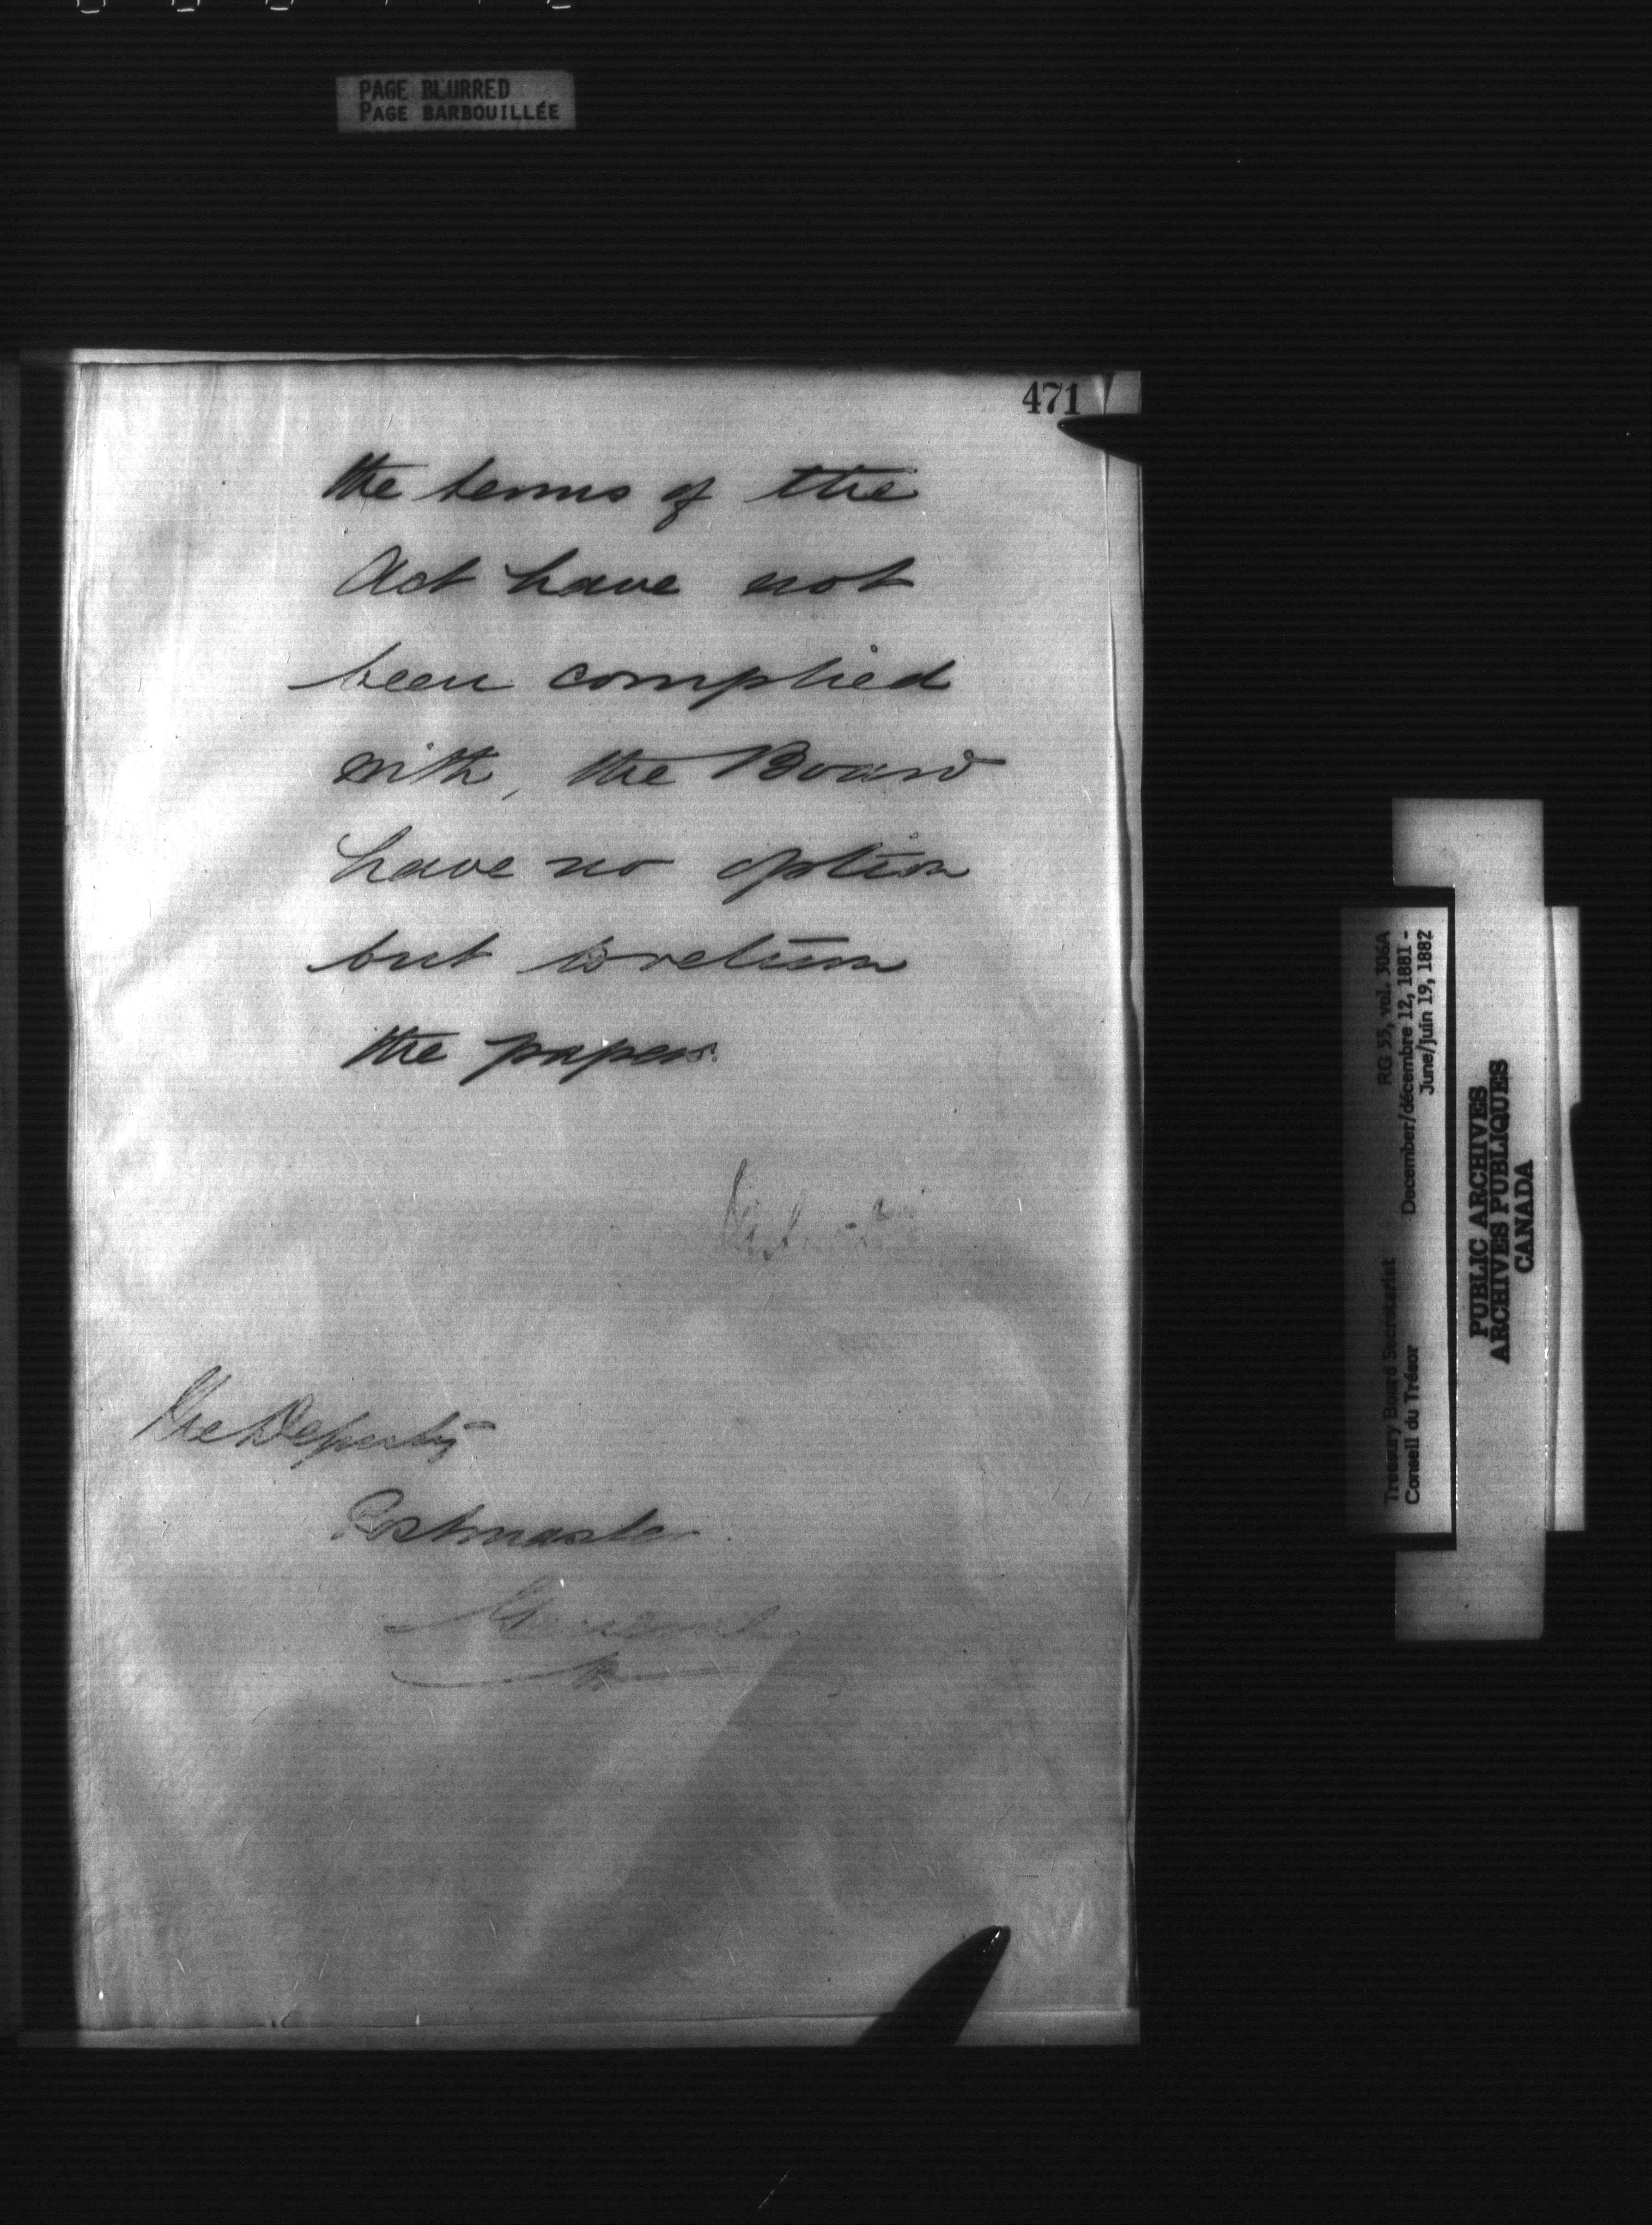 PAGE BLURRED
PAGE BARBOUILLÉE
471
the terms of the
Act have not
been complied
with, the Board
have no option
but to return
the papers.
The Deputy
Postmaster
General
RG 55, vol. 306A
Treasury Board Secretariat December/décembre 12, 1881 -
Conseil du Trésor June/juin 19, 1882
PUBLIC ARCHIVES
ARCHIVES PUBLIQUES
CANADA